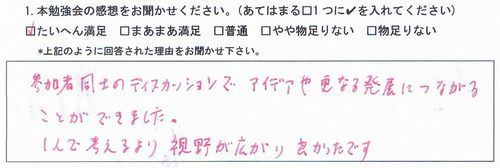 1. 本勉強会の感想をお聞かせください。(あてはまる□1つに✔を入れてください)
☑たいへん満足 □まあまあ満足 □普通 □やや物足りない □物足りない
*上記のように回答された理由をお聞かせ下さい。
参加者同士のディスカッションで アイデアや更なる発展につながる
ことができました。
1人で考えるより 視野が広がり 良かったです